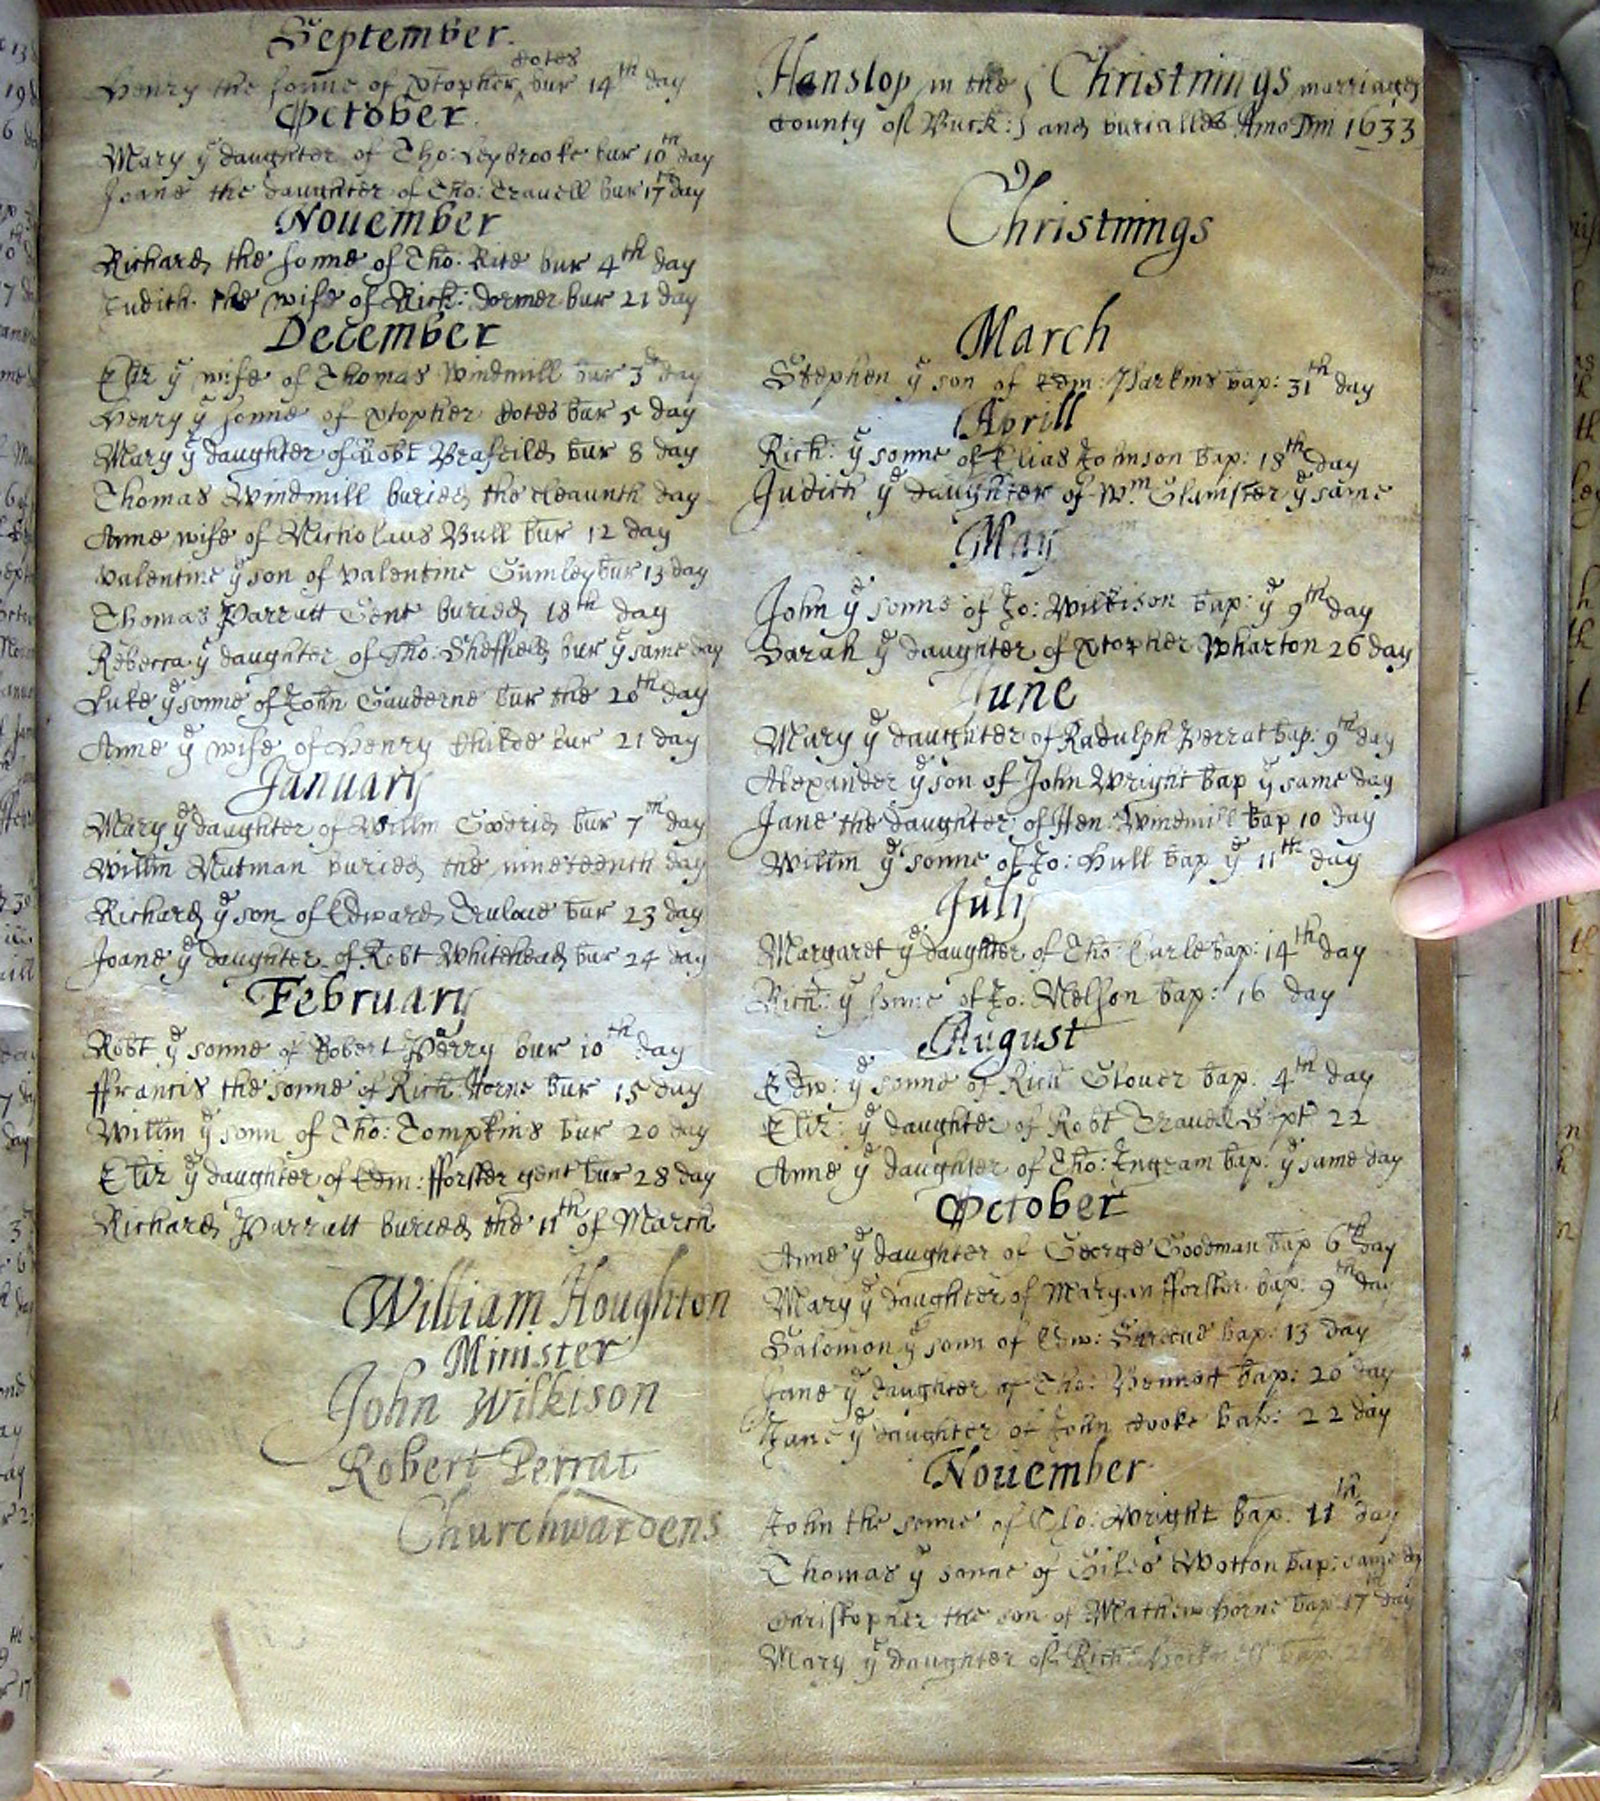 September.
Cotes
Henry the sonne of Xtopher ^ bur 14th day
October.
Mary ye daughter of Tho: Leybrooke bur 10th day
Joane the daughter of Tho: Travell bur 17th day
November
Richard the sonne of Tho: Rice bur 4th day
Judith the wife of Rich: Dormer bur 21 day
December
Eliz ye wife of Thomas Windmill bur 3d day
Henry ye sonne of Xtopher Cotes bur 5 day
Mary ye daughter of Robt Brafeild bur 8 day
Thomas Windmill buried the eleaunth day
Anne wife of Nicholaus Bull bur 12 day
Valentine ye son of Valentine Gumley bur 13 day
Thomas Parratt Gent buried 18th day
Rebecca ye daughter of Tho: Sheffield bur ye same day
Luke ye sonne of John Gauderne bur the 20th day
Anne ye wife of Henry Childe bur 21 day
January
Mary ye daughter of Willm Goodried bur 7th day
Willm Nutman buried the nineteenth day
Richard ye son of Edward Trulove bur 23 day
Joane ye daughter of Robt Whitehead bur 24 day
February
Robt ye sonne of Robert Perry bur 10th day
ffrancis the sonne of Rich: Horne bur 15 day
Willm ye sonn of Tho: Tompkins bur 20 day
Eliz ye daughter of Edm: fforster gent bur 28 day
Richard Parratt buried the 11th of March
William Houghton
Minister
John Wilkison
Robert Perrat
Churchwardens
Hanslop in the } Christnings marriages
County of Buck: } and burialles Ano Dni 1633
Christnings
March
Stephen ye son of Edm: Harkins bap: 31th day
Aprill
Rich: ye sonne of Elias Johnson bap: 18th day
Judith ye daughter of Wm Glanister ye same
May
John ye sonne of Jo: Wilkison bap: ye 9th day
Sarah ye daughter of Xtopher Wharton 26 day
June
Mary ye daughter of Radulph Perrat bap: 9th day
Alexander ye son of John Wright bap ye same day
Jane the daughter of Hen: Windmill bap 10 day
Willm ye sonne of Jo: Hull bap ye 11th day
July
Margaret ye daughter of Tho: Earle bap: 14th day
Rich: ye sonne of Jo: Nelson bap: 16 day
August
Edw: ye sonne of Rich Glover bap. 4th day
Eliz: ye daughter of Robt Travell Sept 22
Anne ye daughter of Tho: Ingram bap: ye same day
October
Anne ye daughter of George Goodman bap 6th day
Mary ye daughter of Morgan fforster bap: 9th day
Salomon ye sonn of Edw: bap: 13 day
Jane ye daughter of Tho: Bennett bap: 20 day
Jane ye daughter of John Cooke bap: 22 day
November
John the sonne of Tho: Wright bap: 11th day
Thomas ye sonne of Giles Wotton bap: same day
Christopher the son of Mathew Horne bap 17th day
Mary ye daughter of Rich: bap: